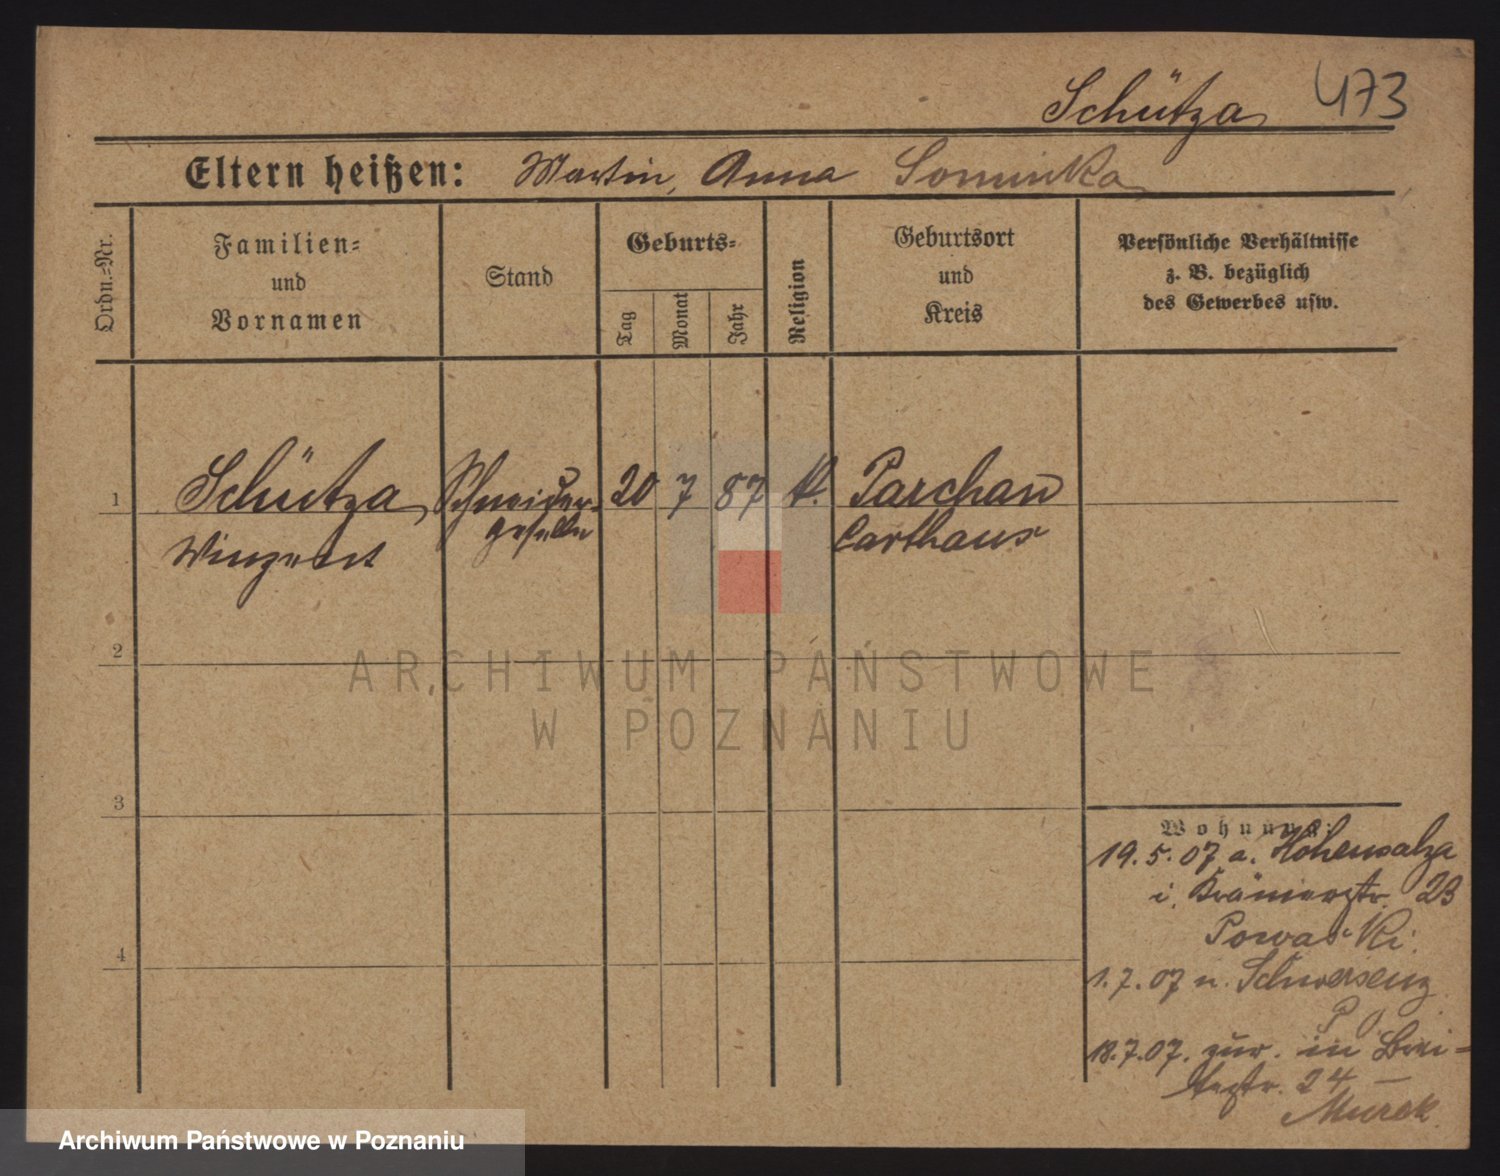 Schütza 473
Eltern heißen: Martin, Anna Sominka
Ordn.-Nr.
Familien-
und
Vornamen
Stand
Geburts-
Tag
Monat
Jahr
Religion
Geburtsort
und
Kreis
Persönliche Verhältnisse
z. B. bezüglich
des Gewerbes usw.
1 Schütza Schneider- 20 7 87 k. Parchau
geselle
Winzent Carthaus
2
ARCHIWUM PAŃSTWOWE
W POZNANIU
3
Wohnung:
19.5.07 a. Hohensalza
i. Krämerstr. 23
Powalski.
4
1.7.07 n. Schwersenz
P
18.7.07. zur. in Brei-
testr. 24 –
Murek
Archiwum Państwowe w Poznaniu